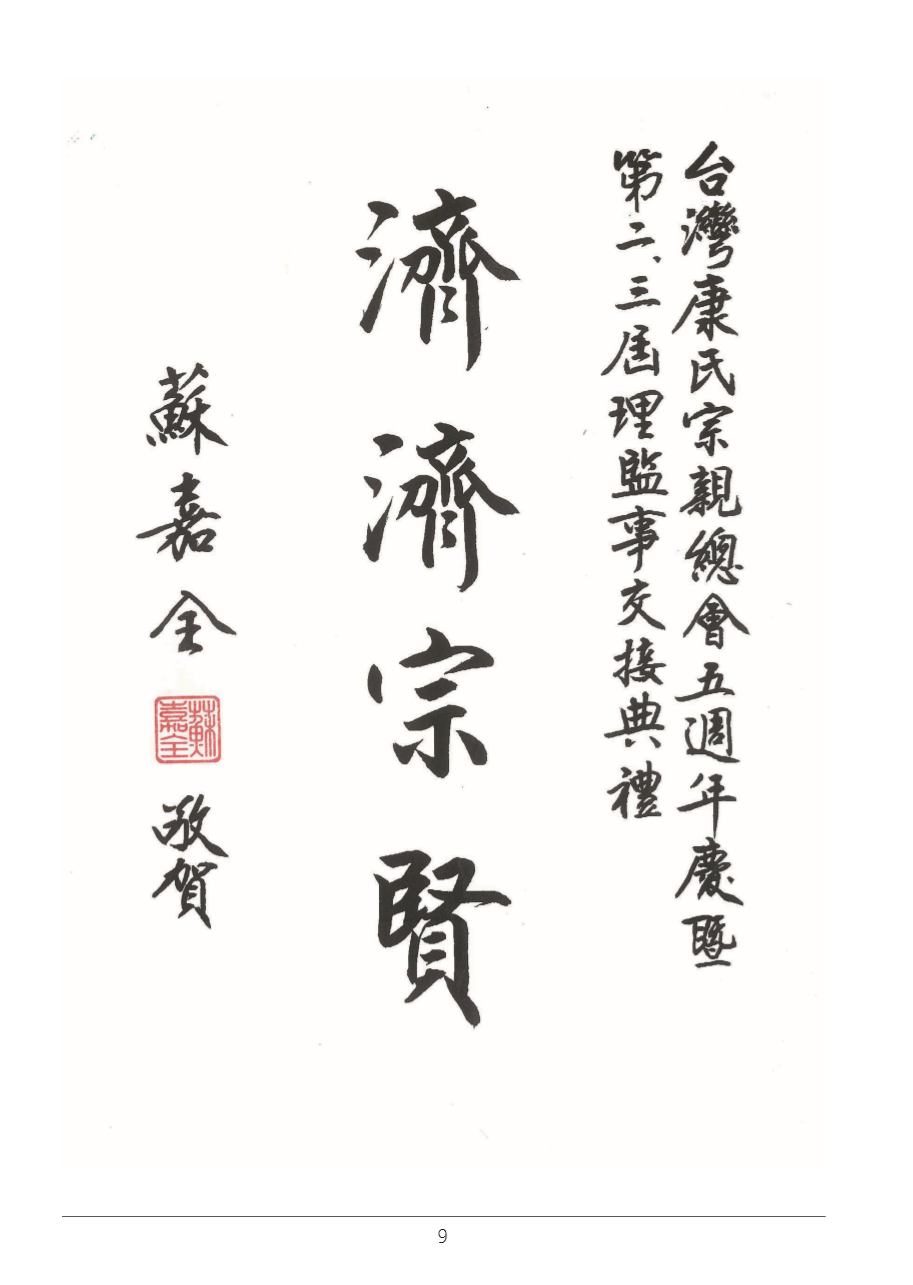 台灣康氏宗親總會五週年慶暨
第二、三屆理監事交接典禮
濟濟宗賢
蘇嘉全
蘇嘉全
敬賀
9